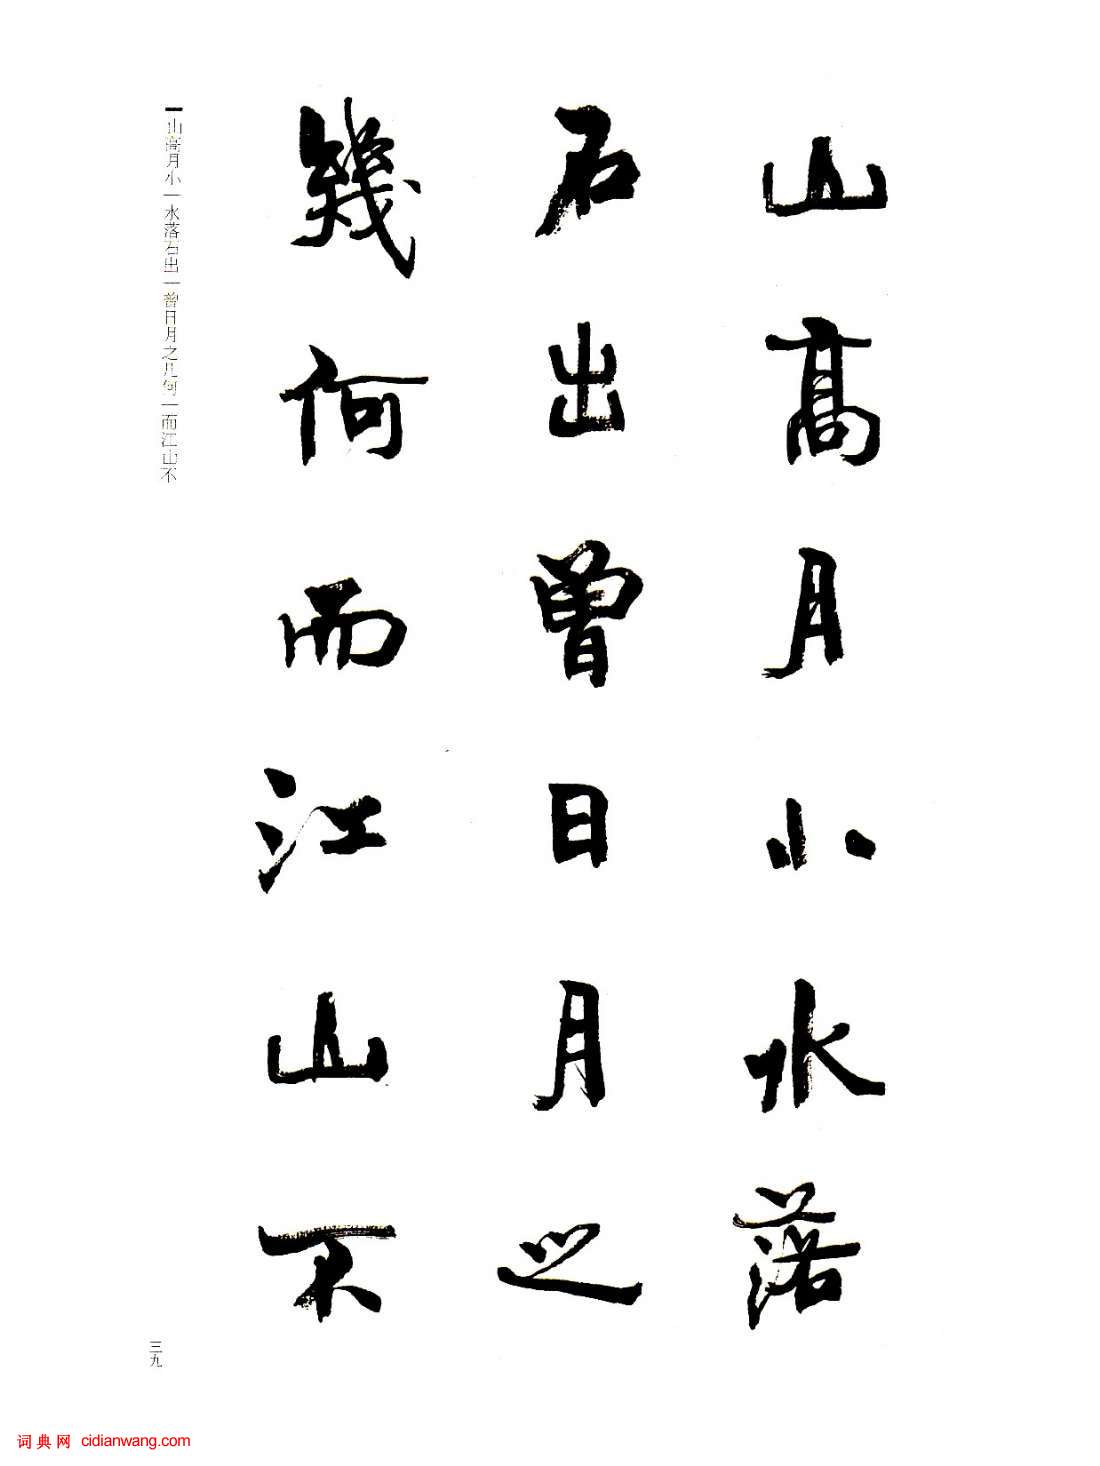 山高月小水落
石出曾日月之
幾何而江山不
山高月小|水落石出|曾日月之几何|而江山不
三九
词典网 cidianwang.com